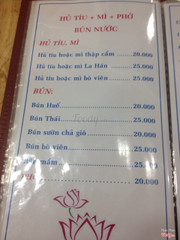 HỦ TÍU + MÌ + PHỞ
BÚN NƯỚC
HỦ TÍU, MÌ
Hủ tíu hoặc mì thập cẩm 20.000
Hủ tíu hoặc mì La Hán 25.000
Hủ tíu hoặc mì bò viên 25.000
BÚN:
Bún Huế 20.000
Bún Thái 25.000
Bún sườn chả giò 20.000
Bún bò viên 25.000
mắm 25.000
20.000